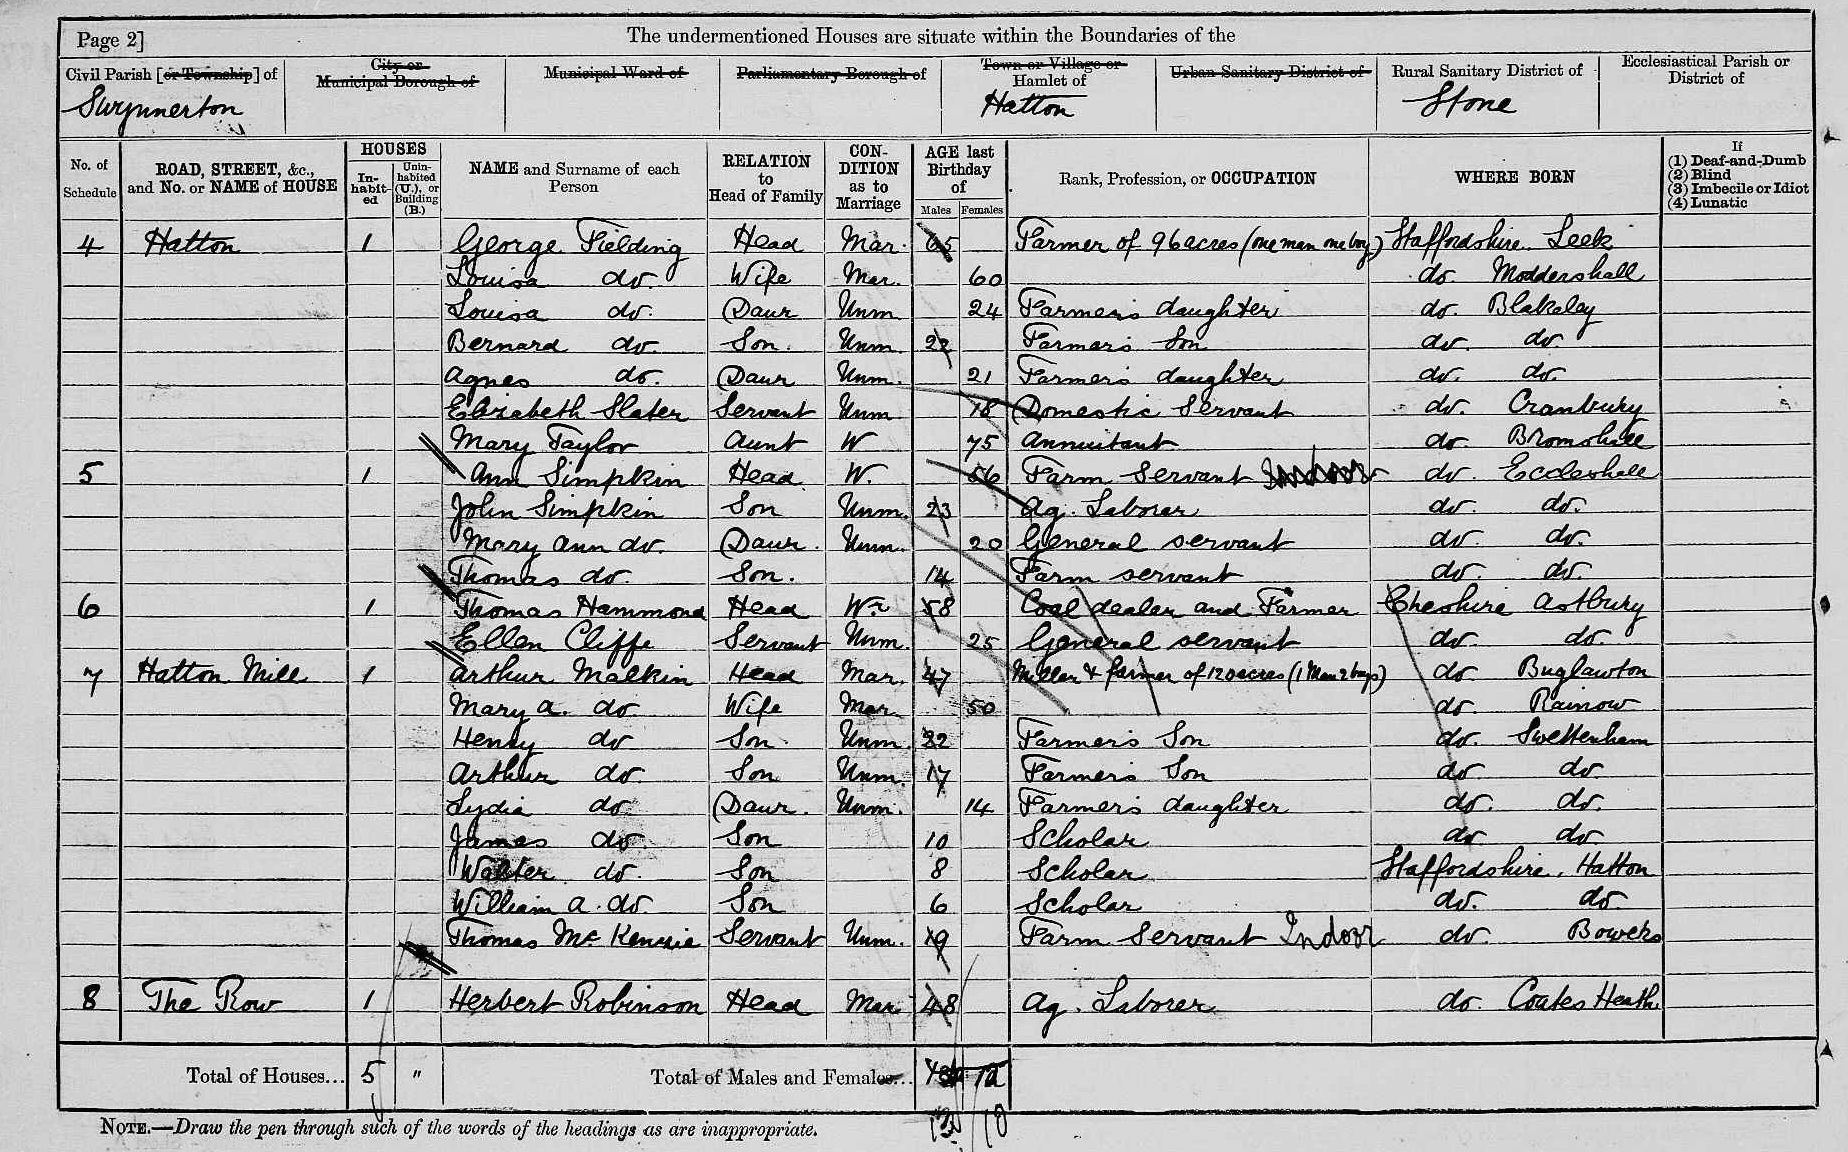 Page 2]
The undermentioned Houses are situate within the Boundaries of the
Civil Parish [or Township] of
City or Municipal Borough of
Municipal Ward of
Parliamentary Borough of
Town or Village or Hamlet of
Urban Sanitary District of
Rural Sanitary District of
Ecclesiastical Parish or District of
Swynnerton Hatton Stone
No. of Schedule
ROAD, STREET, &c., and No. or NAME of HOUSE
HOUSES
In-habit-ed
Unin-habited (U.), or Building (B.)
NAME and Surname of each Person
RELATION to Head of Family
CON-DITION as to Marriage
AGE last Birthday of
Males Females
Rank, Profession, or OCCUPATION
WHERE BORN
If
(1) Deaf-and-Dumb
(2) Blind
(3) Imbecile or Idiot
(4) Lunatic
4 Hatton 1 George Fielding Head Mar. 65 Farmer of 96 acres (one man one boy) Staffordshire Leek
Louisa do. Wife Mar. 60 do. Moddershall
Louisa do. Daur Unm 24 Farmer's daughter do. Blakeley
Bernard do. Son. Unm. 22 Farmer's Son do. do.
Agnes do. Daur Unm. 21 Farmer's daughter do. do.
Elizabeth Slater Servant Unm. 18 Domestic Servant do. Cranbury
Mary Taylor Aunt W 75 Annuitant do. Bromshall
5 1 Ann Simpkin Head W. 56 Farm Servant do. Eccleshall
John Simpkin Son Unm. 23 Ag. Laborer do. do.
Mary Ann do. Daur. Unm. 20 General servant do. do.
Thomas do. Son. 14 Farm servant do. do.
6 1 Thomas Hammond Head Wr 58 Coal dealer and Farmer Cheshire Astbury
Ellen Cliffe Servant Unm. 25 General servant do. do.
7 Hatton Mill 1 Arthur Malkin Head Mar. 47 Miller & farmer of 120 acres (1 Man 2 boys) do Buglawton
Mary A. do Wife Mar 50 do. Rainow
Henry do Son. Unm. 22 Farmer's Son do. Swettenham
Arthur do Son Unm 17 Farmer's Son do do.
Lydia do. Daur. Unm. 14 Farmer's daughter do. do.
James do Son 10 Scholar do do
Walter do. Son 8 Scholar Staffordshire. Hatton
William A. do. Son 6 Scholar do. do.
Thomas Mc Kenzie Servant Unm. 19 Farm Servant Indoor do. Bowers
8 The Row 1 Herbert Robinson Head Mar 48 Ag. Laborer do. Coates Heath
Total of Houses... 5 " Total of Males and Females... 12
13 10
NOTE.—Draw the pen through such of the words of the headings as are inappropriate.